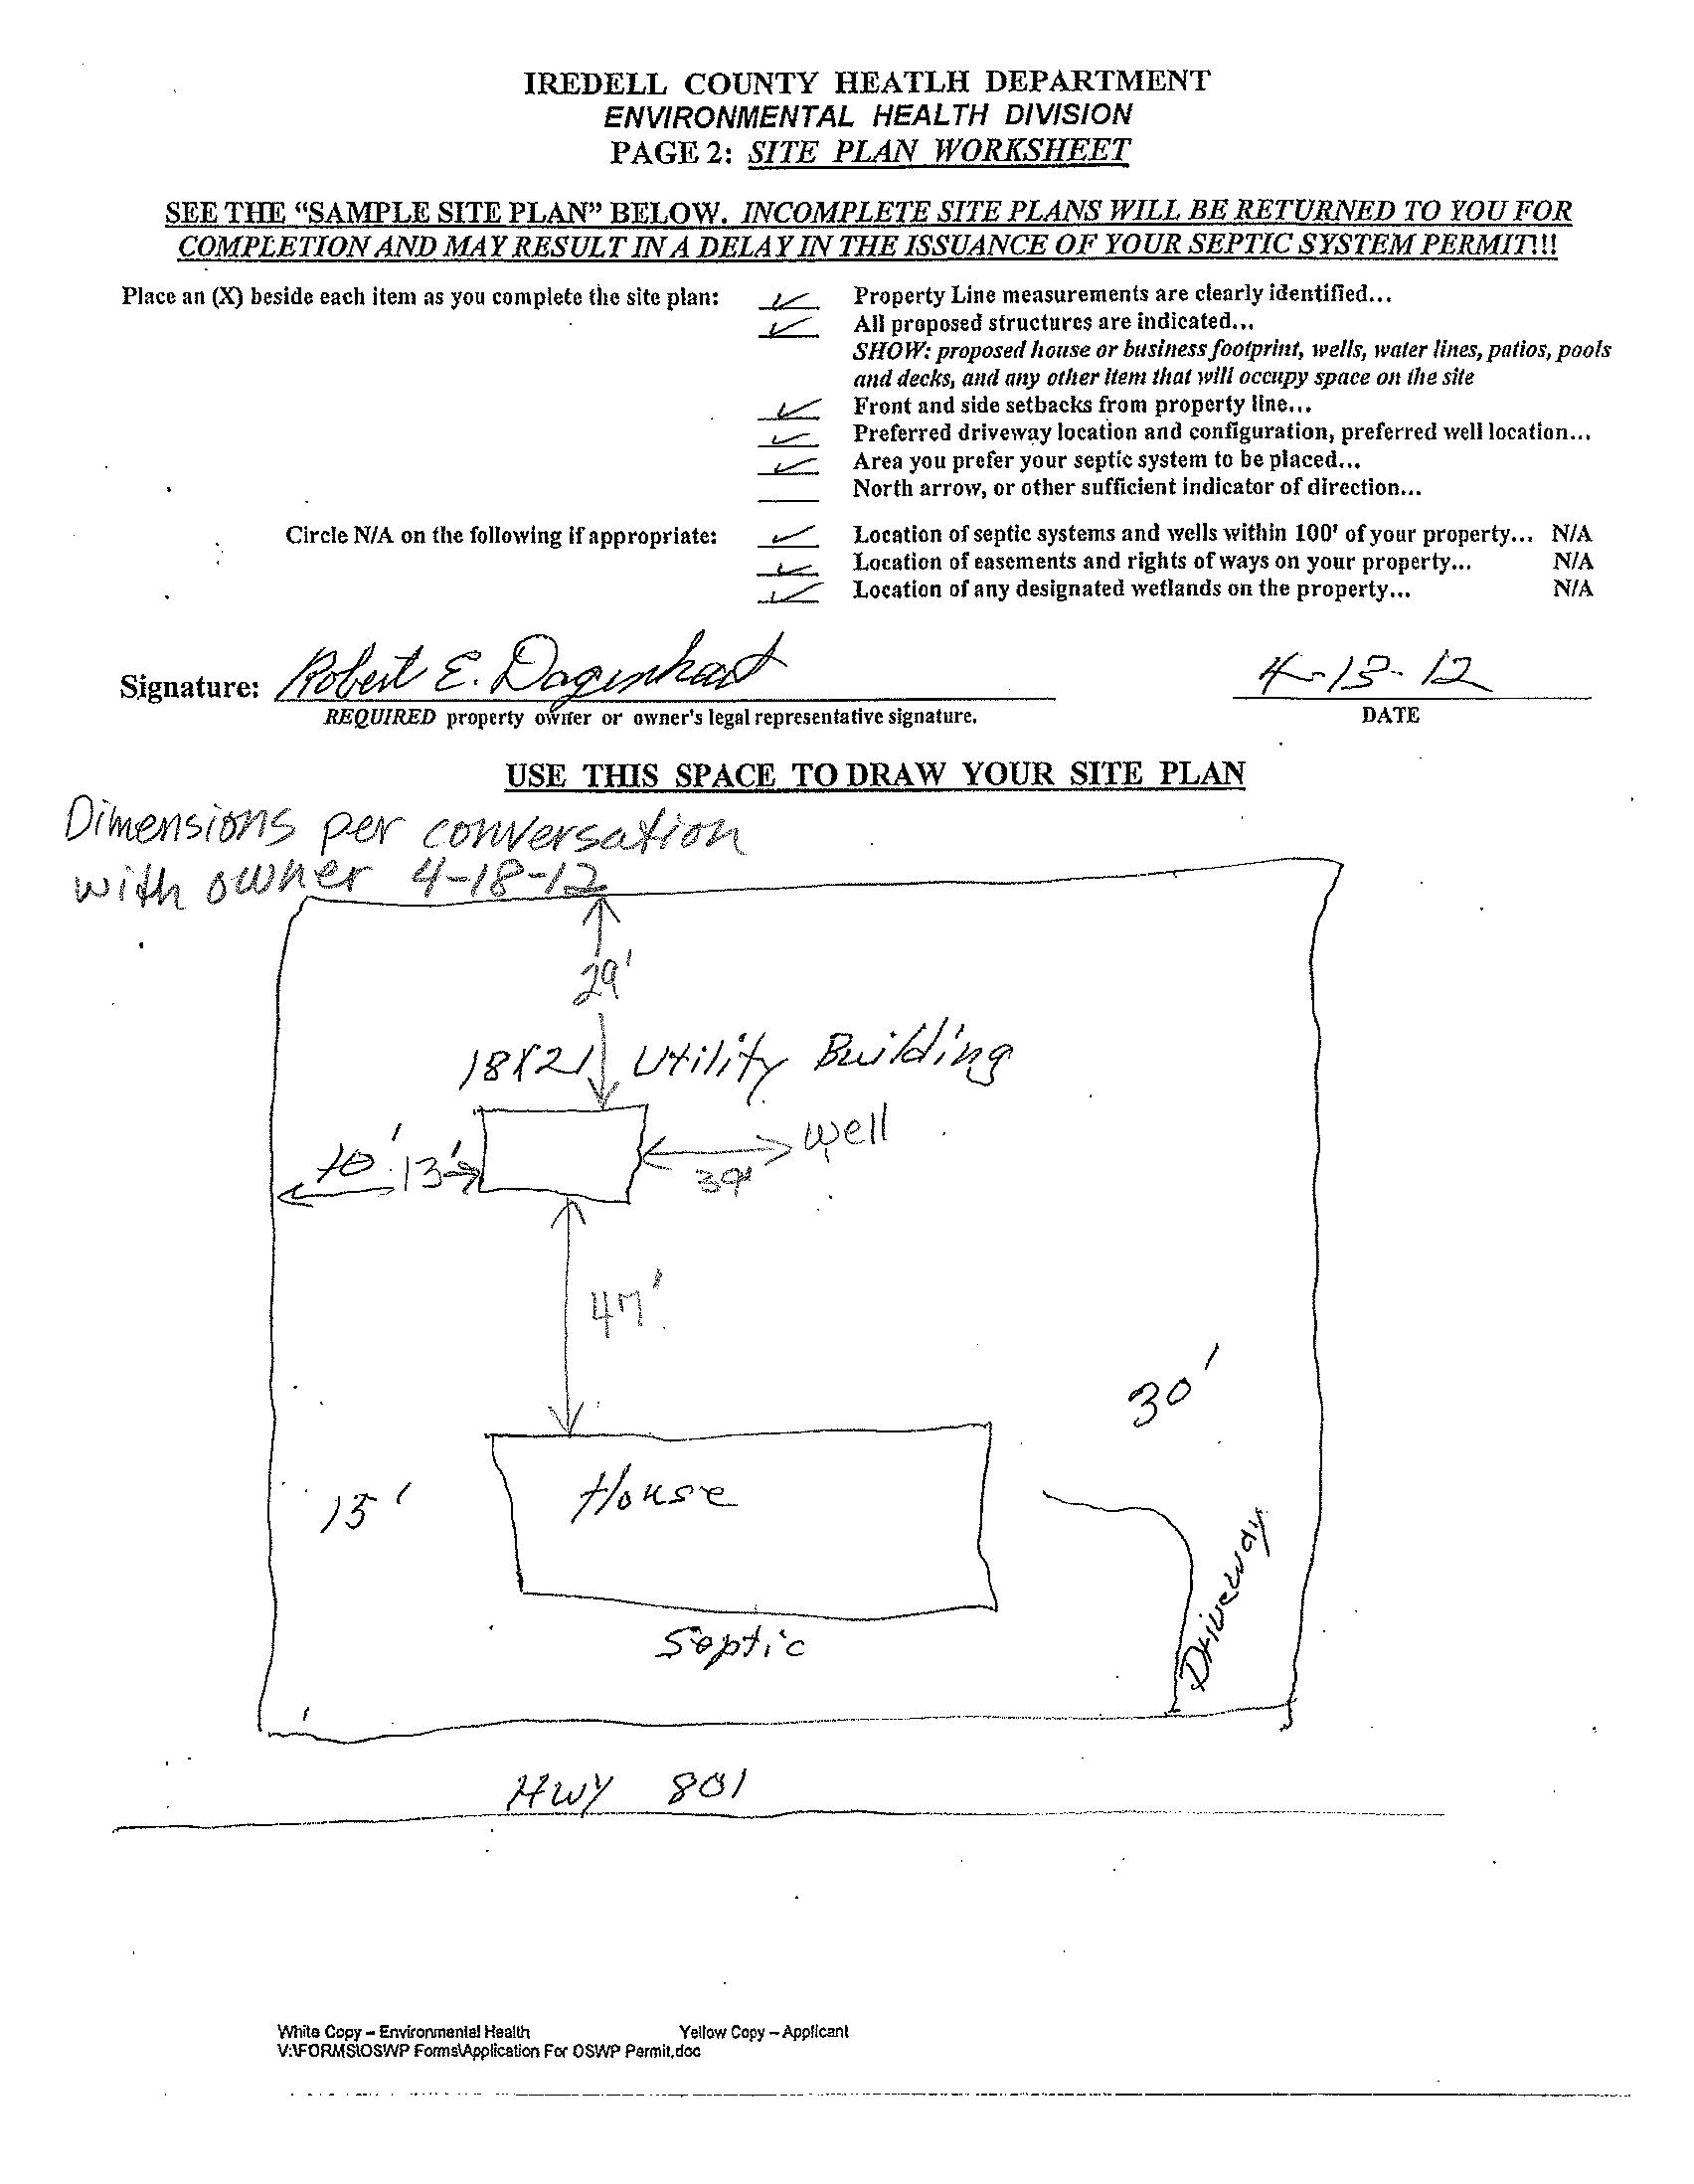 IREDELL COUNTY HEATLH DEPARTMENT
ENVIRONMENTAL HEALTH DIVISION
PAGE 2: SITE PLAN WORKSHEET
SEE THE “SAMPLE SITE PLAN” BELOW. INCOMPLETE SITE PLANS WILL BE RETURNED TO YOU FOR
COMPLETION AND MAY RESULT IN A DELAY IN THE ISSUANCE OF YOUR SEPTIC SYSTEM PERMIT!!!
Place an (X) beside each item as you complete the site plan: ✓ Property Line measurements are clearly identified...
✓ All proposed structures are indicated...
SHOW: proposed house or business footprint, wells, water lines, patios, pools
and decks, and any other item that will occupy space on the site
✓ Front and side setbacks from property line...
✓ Preferred driveway location and configuration, preferred well location...
✓ Area you prefer your septic system to be placed...
North arrow, or other sufficient indicator of direction...
Circle N/A on the following if appropriate: ✓ Location of septic systems and wells within 100' of your property... N/A
✓ Location of easements and rights of ways on your property... N/A
✓ Location of any designated wetlands on the property... N/A
Signature: Robert E. Dagenhart 4-13-12
REQUIRED property owner or owner's legal representative signature. DATE
USE THIS SPACE TO DRAW YOUR SITE PLAN
Dimensions per conversation
with owner 4-18-12
29'
18x21 Utility Building
10' 13' 39' well
47'
30'
15' House
Driveway
Septic
HWY 801
White Copy – Environmental Health Yellow Copy – Applicant
V:\FORMS\OSWP Forms\Application For OSWP Permit.doc